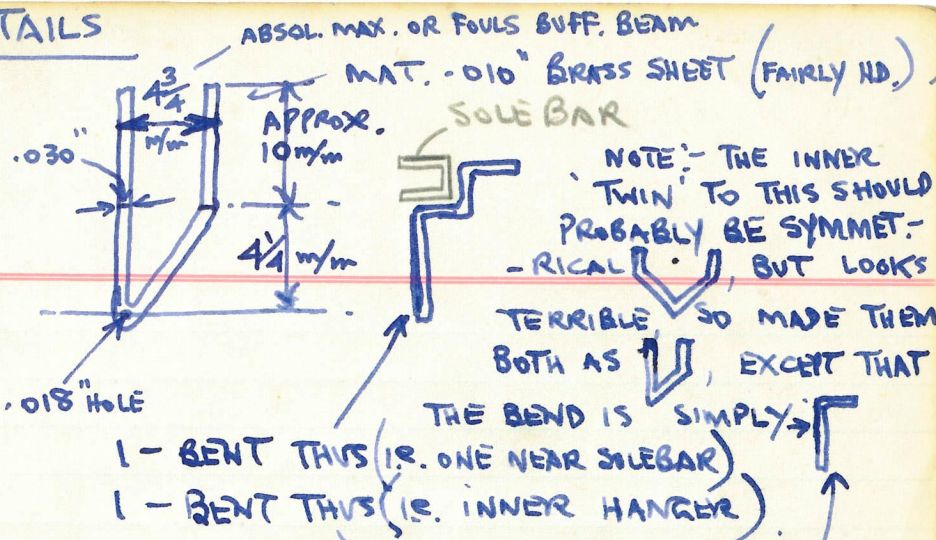 TAILS
ABSOL. MAX. OR FOULS BUFF. BEAM
MAT. .010" BRASS SHEET (FAIRLY HD.)
4 3/4
m/m
APPROX.
10 m/m
.030"
SOLEBAR
4 1/4 m/m
.018" HOLE
NOTE:- THE INNER
'TWIN' TO THIS SHOULD
PROBABLY BE SYMMET.-
-RICAL , BUT LOOKS
TERRIBLE, SO MADE THEM
BOTH AS , EXCEPT THAT
THE BEND IS SIMPLY
1 - BENT THUS (i.e. ONE NEAR SOLEBAR)
1 - BENT THUS (i.e. INNER HANGER).